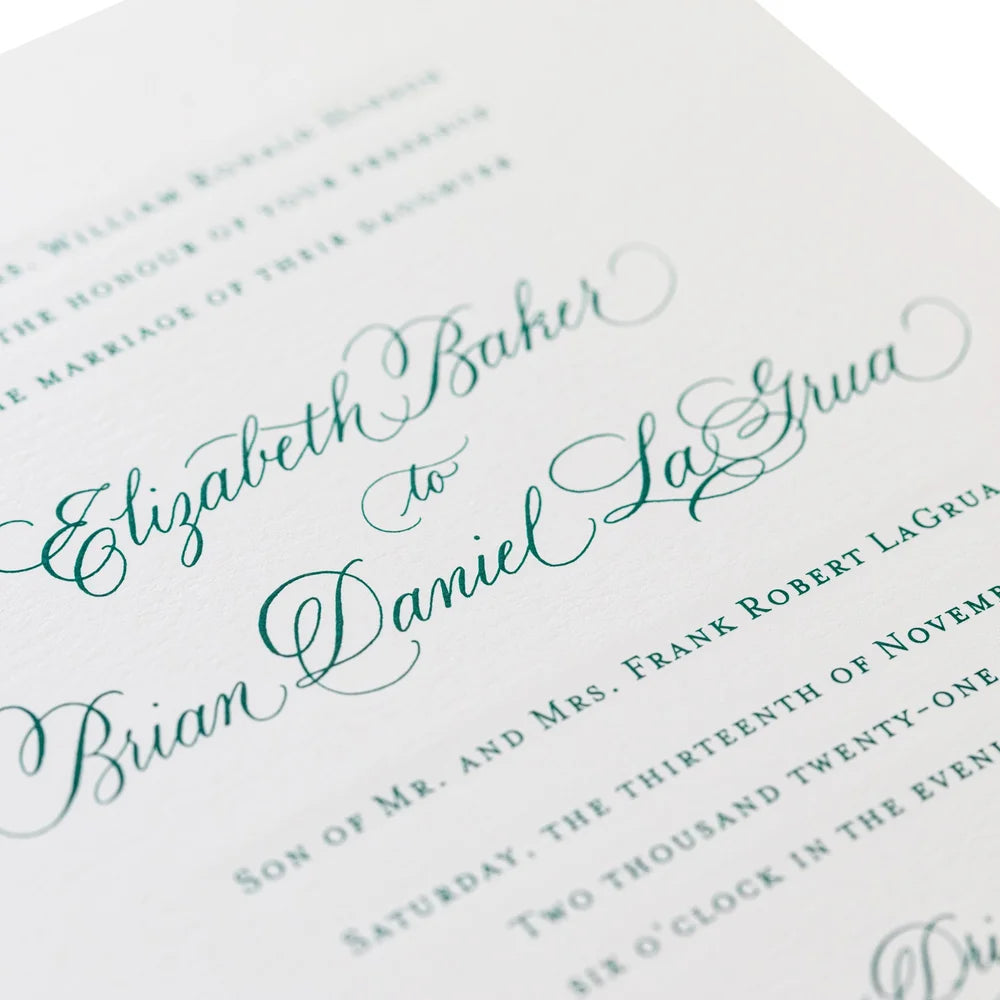 William Ronald
the honour of your presence
marriage of their daughter
Elizabeth Baker
to
Brian Daniel LaGrua
Son of Mr. and Mrs. Frank Robert LaGrua
Saturday, the thirteenth of
Two thousand twenty-one
six o'clock in the